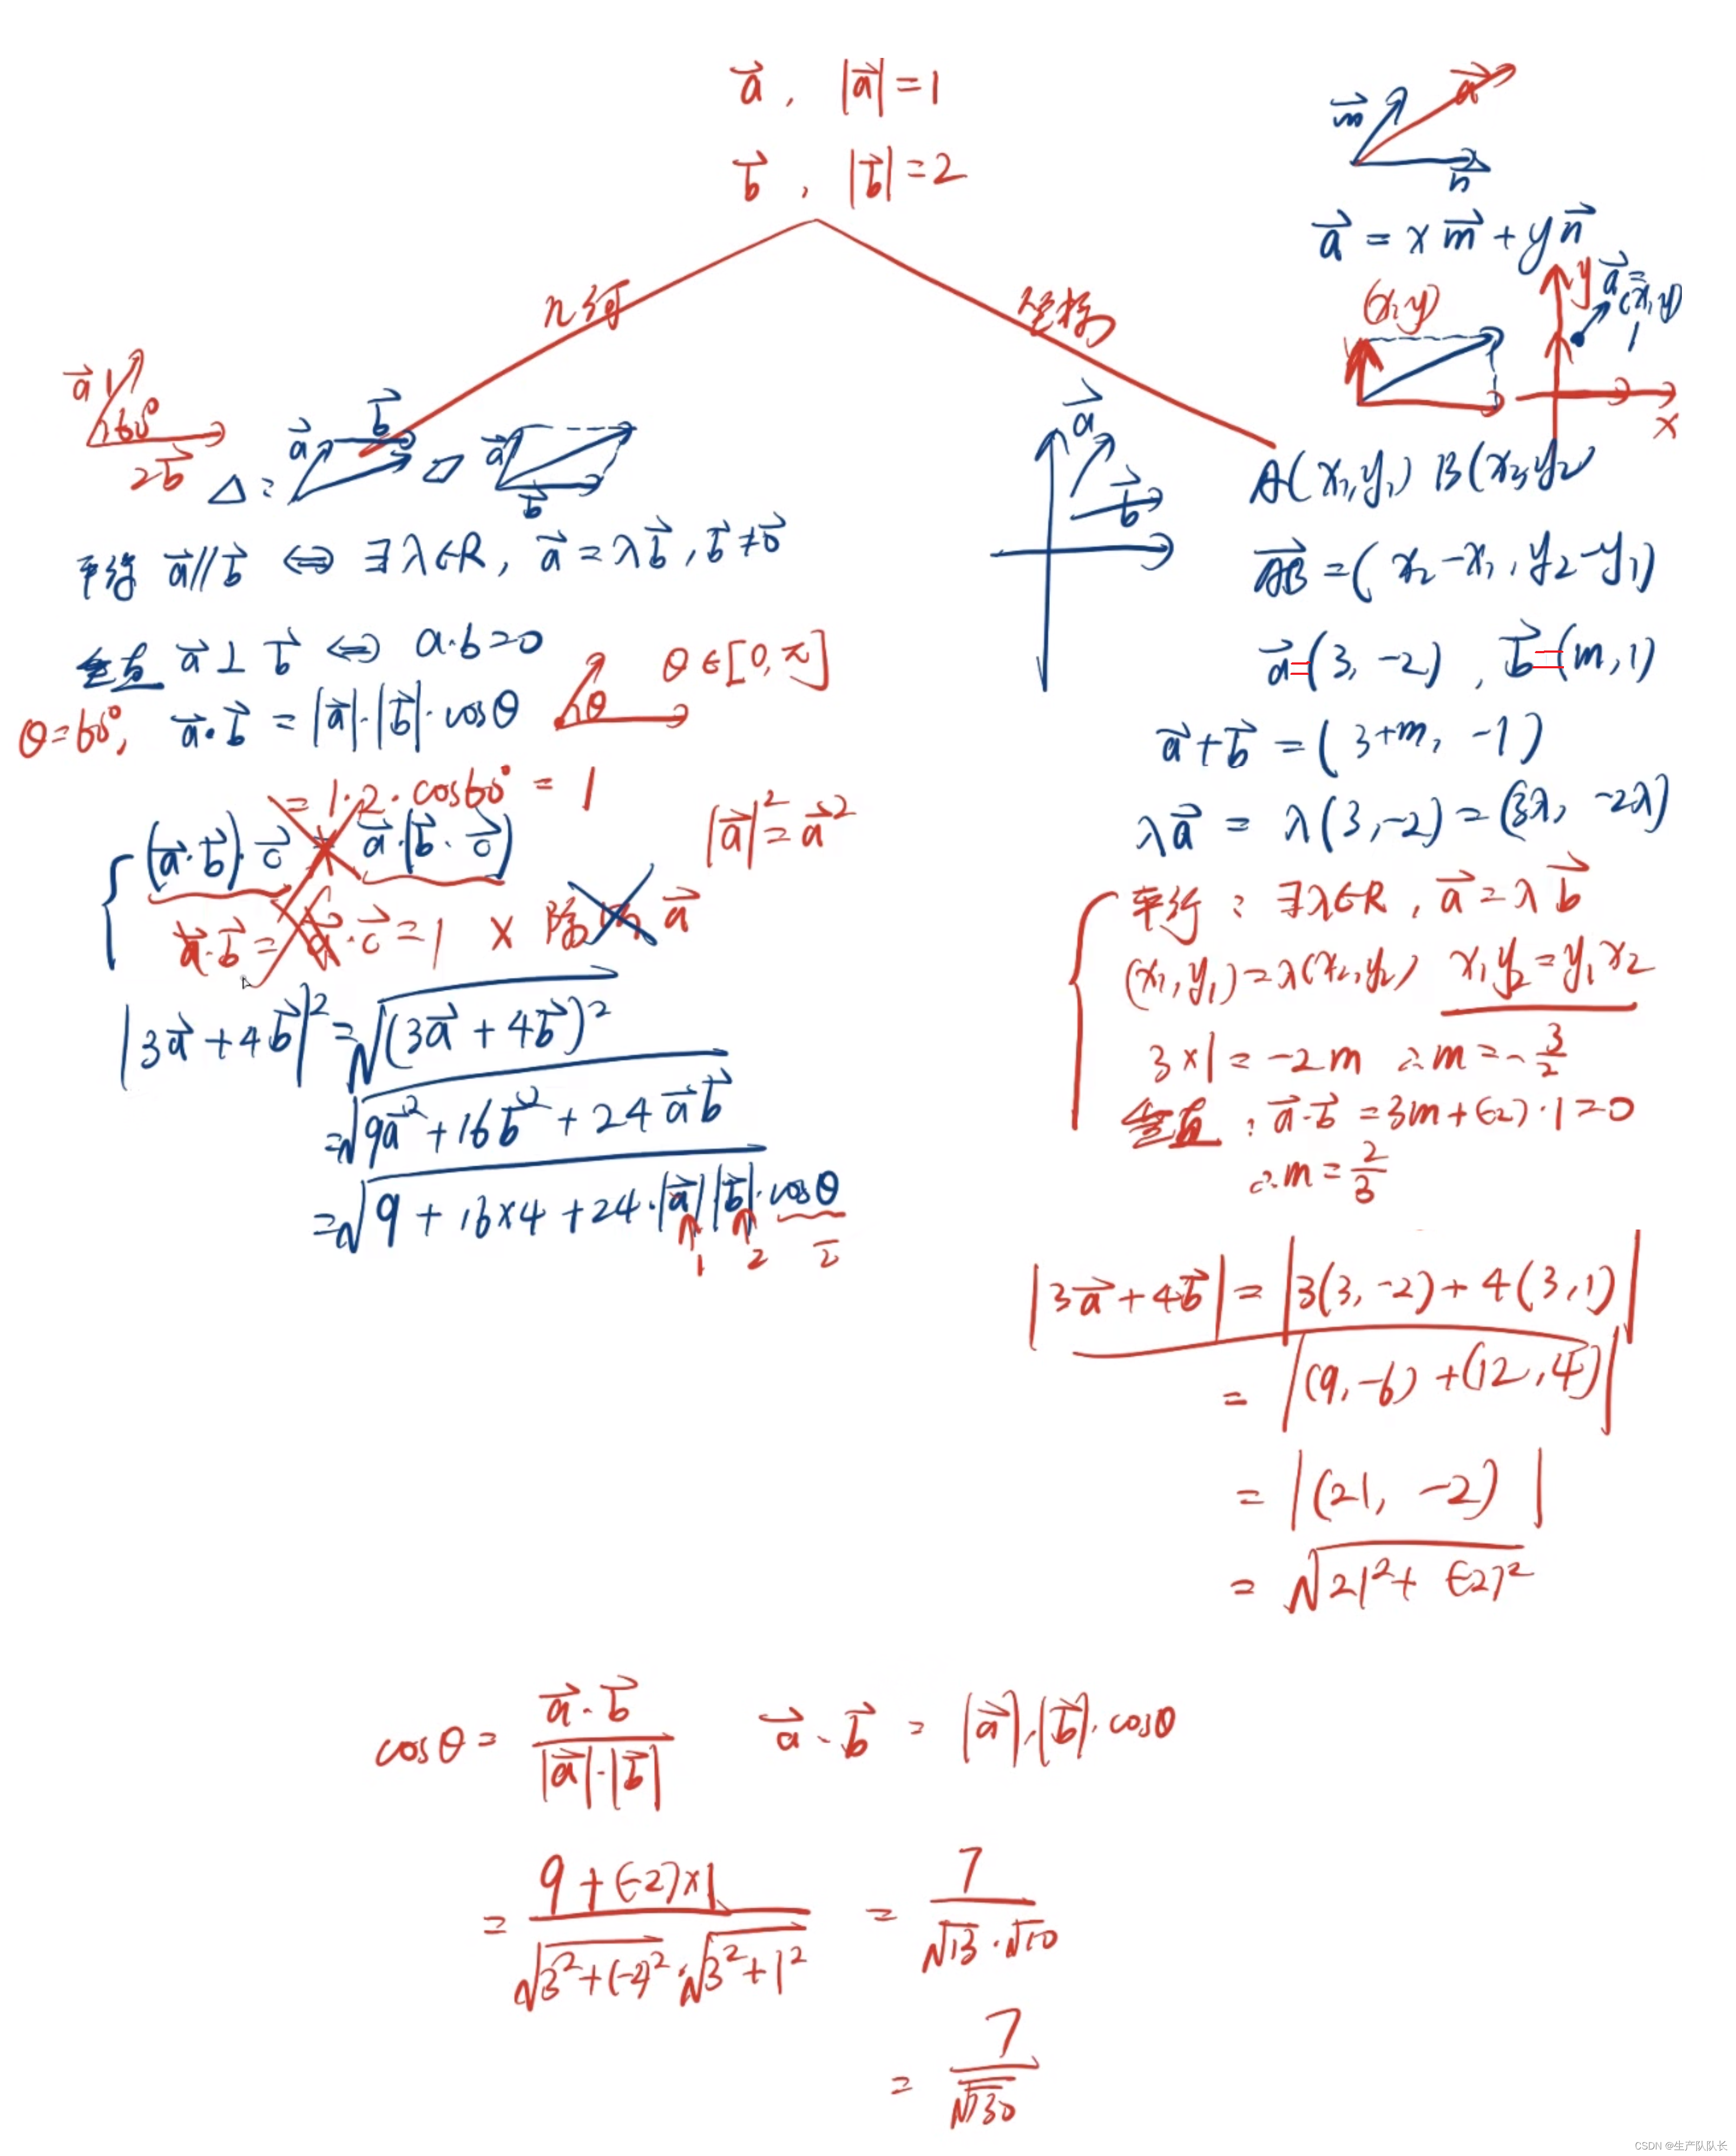 a⃗ , |a⃗|=1
b⃗ , |b⃗|=2
几何
坐标
m⃗
a⃗
n⃗
a⃗ = x m⃗ + y n⃗
(x,y)
y
a⃗=(x,y)
x
a⃗ 1
60°
2 b⃗
△:
a⃗
b⃗
▱
a⃗
b⃗
平行 a⃗∥b⃗ ⇔ ∃λ∈R, a⃗=λb⃗, b⃗≠0⃗
垂直 a⃗⊥b⃗ ⇔ a·b=0
θ θ∈[0,π]
θ=60°, a⃗·b⃗ = |a⃗|·|b⃗|·cosθ
=1·2·cos60°=1
(a⃗·b⃗)·c⃗ a⃗·(b⃗·c⃗)
|a⃗|²=a⃗²
a⃗·b⃗= a⃗·c⃗=1 × 除 a⃗
|3a⃗+4b⃗|²=√(3a⃗+4b⃗)²
=√9a⃗²+16b⃗²+24a⃗b⃗
=√9+16×4+24·|a⃗||b⃗|·cosθ
1 2 2
a⃗
b⃗
A(x₁,y₁) B(x₂,y₂
AB⃗=(x₂-x₁, y₂-y₁)
a⃗=(3,-2) , b⃗=(m,1)
a⃗+b⃗=(3+m, -1)
λa⃗ = λ(3,-2)=(3λ, -2λ)
平行: ∃λ∈R, a⃗=λb⃗
(x₁,y₁)=λ(x₂,y₂) x₁y₂=y₁x₂
3×1=-2m ∴m=-3/2
垂直: a⃗·b⃗=3m+(-2)·1=0
∴m=2/3
|3a⃗+4b⃗|=|3(3,-2)+4(3,1)|
=|(9,-6)+(12,4)|
=|(21, -2)|
=√21²+(-2)²
cosθ= a⃗·b⃗/|a⃗|·|b⃗| a⃗·b⃗ = |a⃗|·|b⃗|·cosθ
= 9+(-2)×1/√3²+(-2)²·√3²+1² = 7/√13·√10
= 7/√130
CSDN @生产队队长